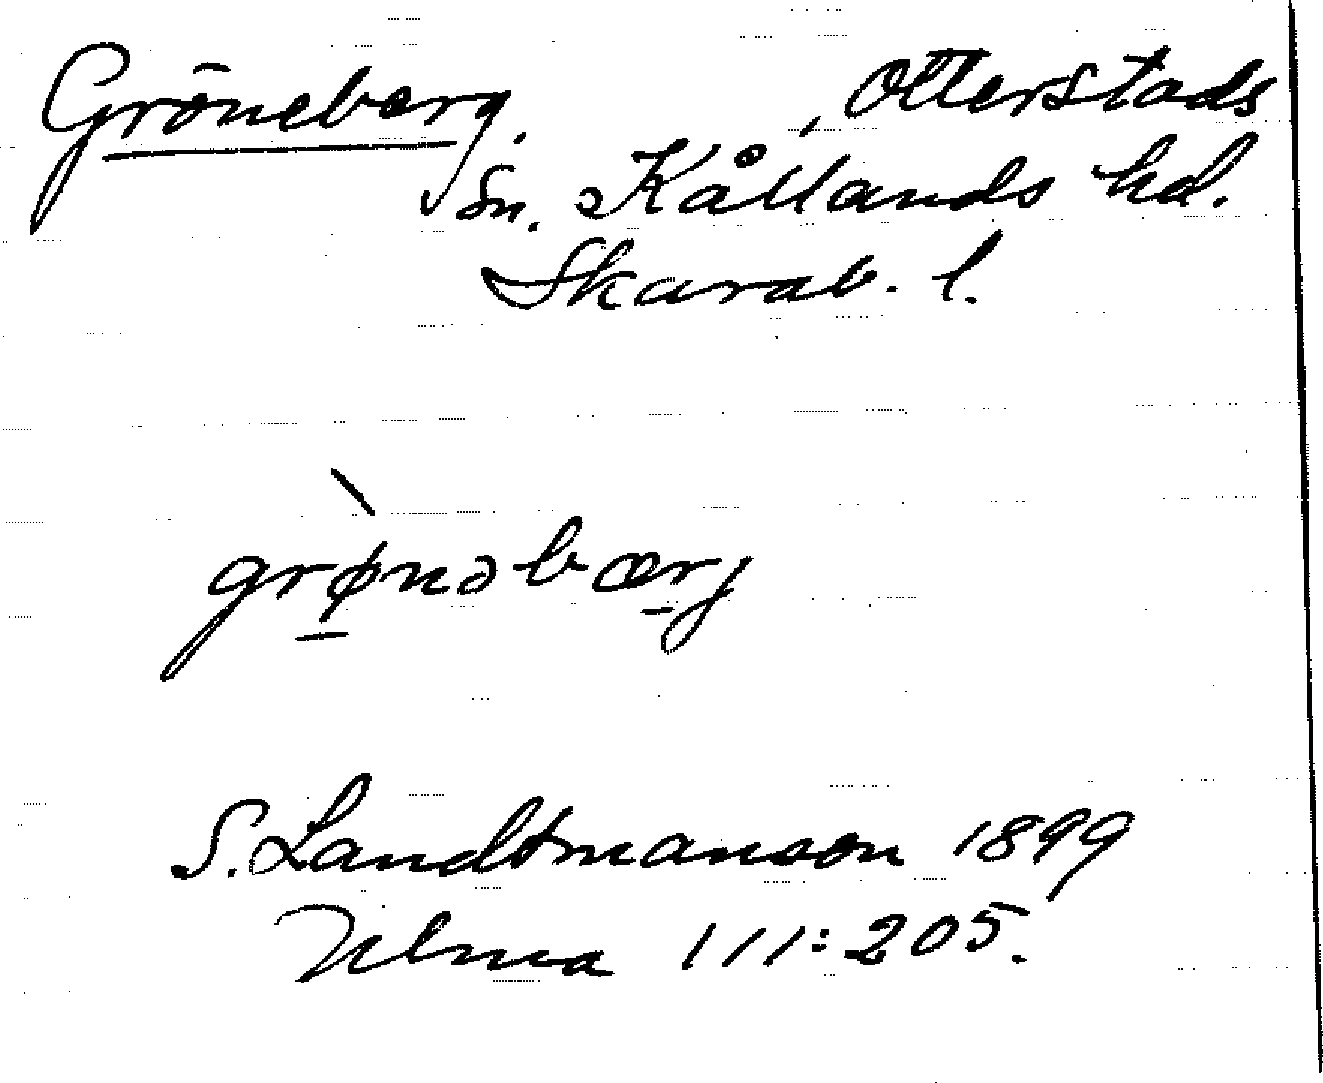 Gröneberg. , Otterstads
sn. Kållands hd.
Skarab. l.
grønəbærj
S. Landtmanson 1899
111:205.